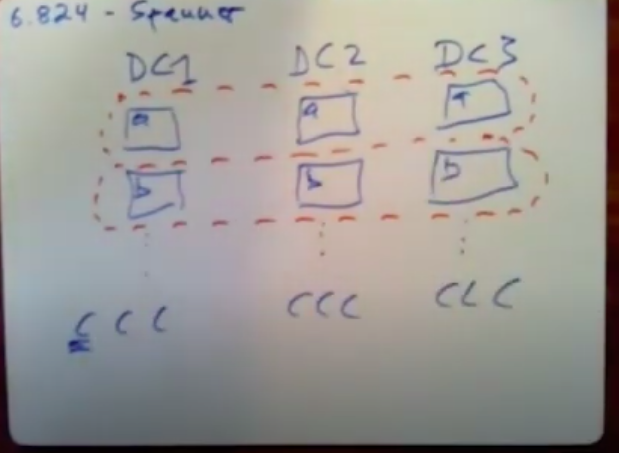 6.824 - Spanner
DC1 DC2 DC3
a a a
b b b
C C C CCC C C C